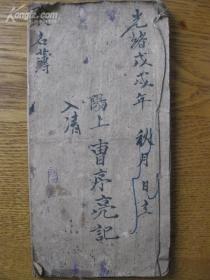 光緒戊戌年 秋月 日立
陽上曹序亮記
入清
名簿